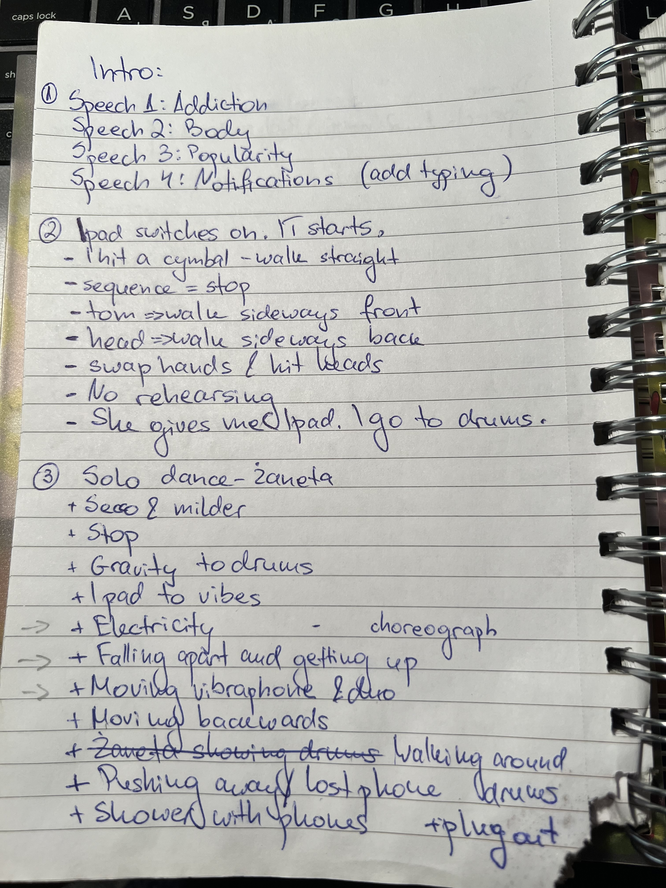 caps lock A S D F G
Intro:
① Speech 1: Addiction
Speech 2: Body
Speech 3: Popularity
Speech 4: Notifications (add typing)
② Ipad switches on. starts,
- I hit a cymbal - walk straight
- sequence = stop
- tom => walk sideways front
- head => walk sideways back
- swap hands & hit heads
- No rehearsing
- She gives me Ipad. I go to drums.
③ Solo dance - Żaneta
+ Secco & milder
+ Stop
+ Gravity to drums
+ Ipad to vibes
→ + Electricity - choreograph
→ + Falling apart and getting up
→ + Moving vibraphone & duo
+ Moving backwards
+ Żaneta showing drums Walking around
+ Pushing away / lost phone drums
+ Shower with phones + plug out